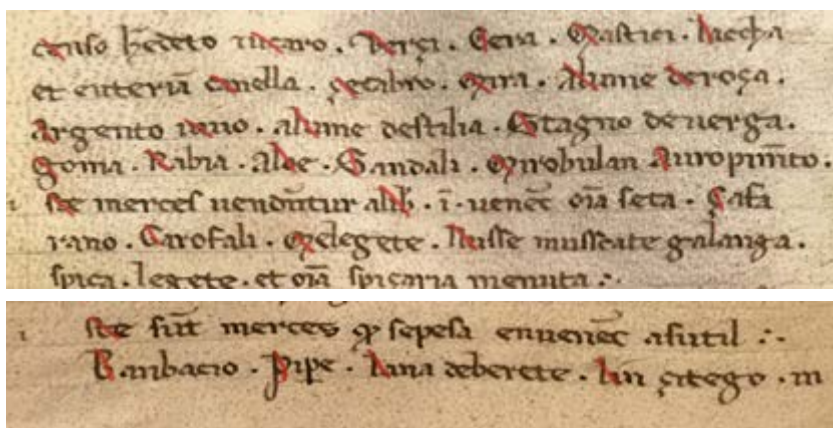 enso bedeto incaro. Verçi. Cera. Mastici. Laccha
et euteriā canella. çecabro. Mira. Alume deroça.
Argento uiuo. alume destilia. Stagno deuerga.
Goma. Rabia. Aloe. Sandali. Mirobulan Auropimēto.
ste merces uendūtur alib̄. ī. uenec̄ oīa seta. Çafa
rano. Garofali. Melegete. Nusse musscate galanga.
spica. legete. et oīa spicaria menuta
ste sūt merces sepesa enuenec̄ asutil
Banbacio. Pipe. Lana deberete. Lin çitego. m